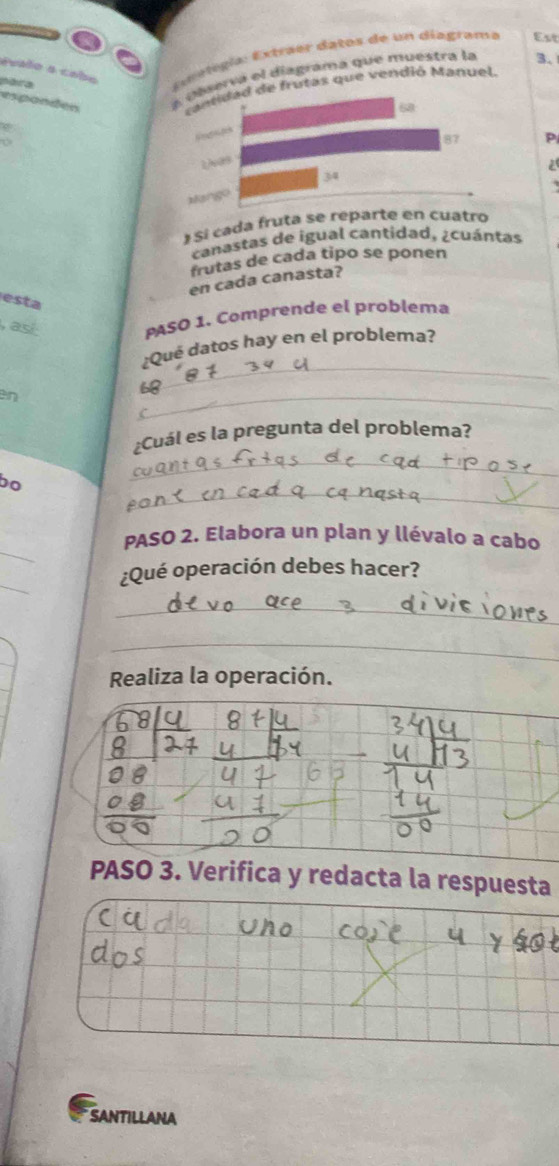 Est
évalo a cabo
Estrategia: Extraer datos de un diagrama
3.
para
Observa el diagrama que muestra la
esponden
cantidad de frutas que vendió Manuel.
68
Uvas 87
Mango 34
Si cada fruta se reparte en cuatro
canastas de igual cantidad, ¿cuántas
frutas de cada tipo se ponen
en cada canasta?
esta
, así:
PASO 1. Comprende el problema
¿Qué datos hay en el problema?
68 87 34 4
en
¿Cuál es la pregunta del problema?
cuantas frtas de cad tipo se
bo
pone en cada canasta
PASO 2. Elabora un plan y llévalo a cabo
¿Qué operación debes hacer?
devo ace 3 diviciones
Realiza la operación.
68 4 87 4 34 4
8 27 4 4 13
08 47 14
08 47 14
00 00 00
PASO 3. Verifica y redacta la respuesta
cada uno coje 4 y
dos
SANTILLANA